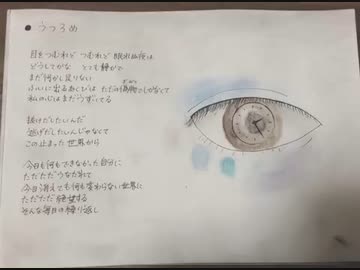 ●うつろめ
目をつむれど つむれど 眠れぬ夜は
どうしてかな とても静かで
まだ何か足りない
ふいに出るあくびは ただの偽物でしかなくて
私の心はまだうずいてる
抜けだしたいんだ
逃げだしたいんじゃなくて
この止まった世界から
今日も何もできなかった自分に
ただただうなだれて
今日消えても何も変わらない世界に
ただただ絶望する
そんな毎日の繰り返し